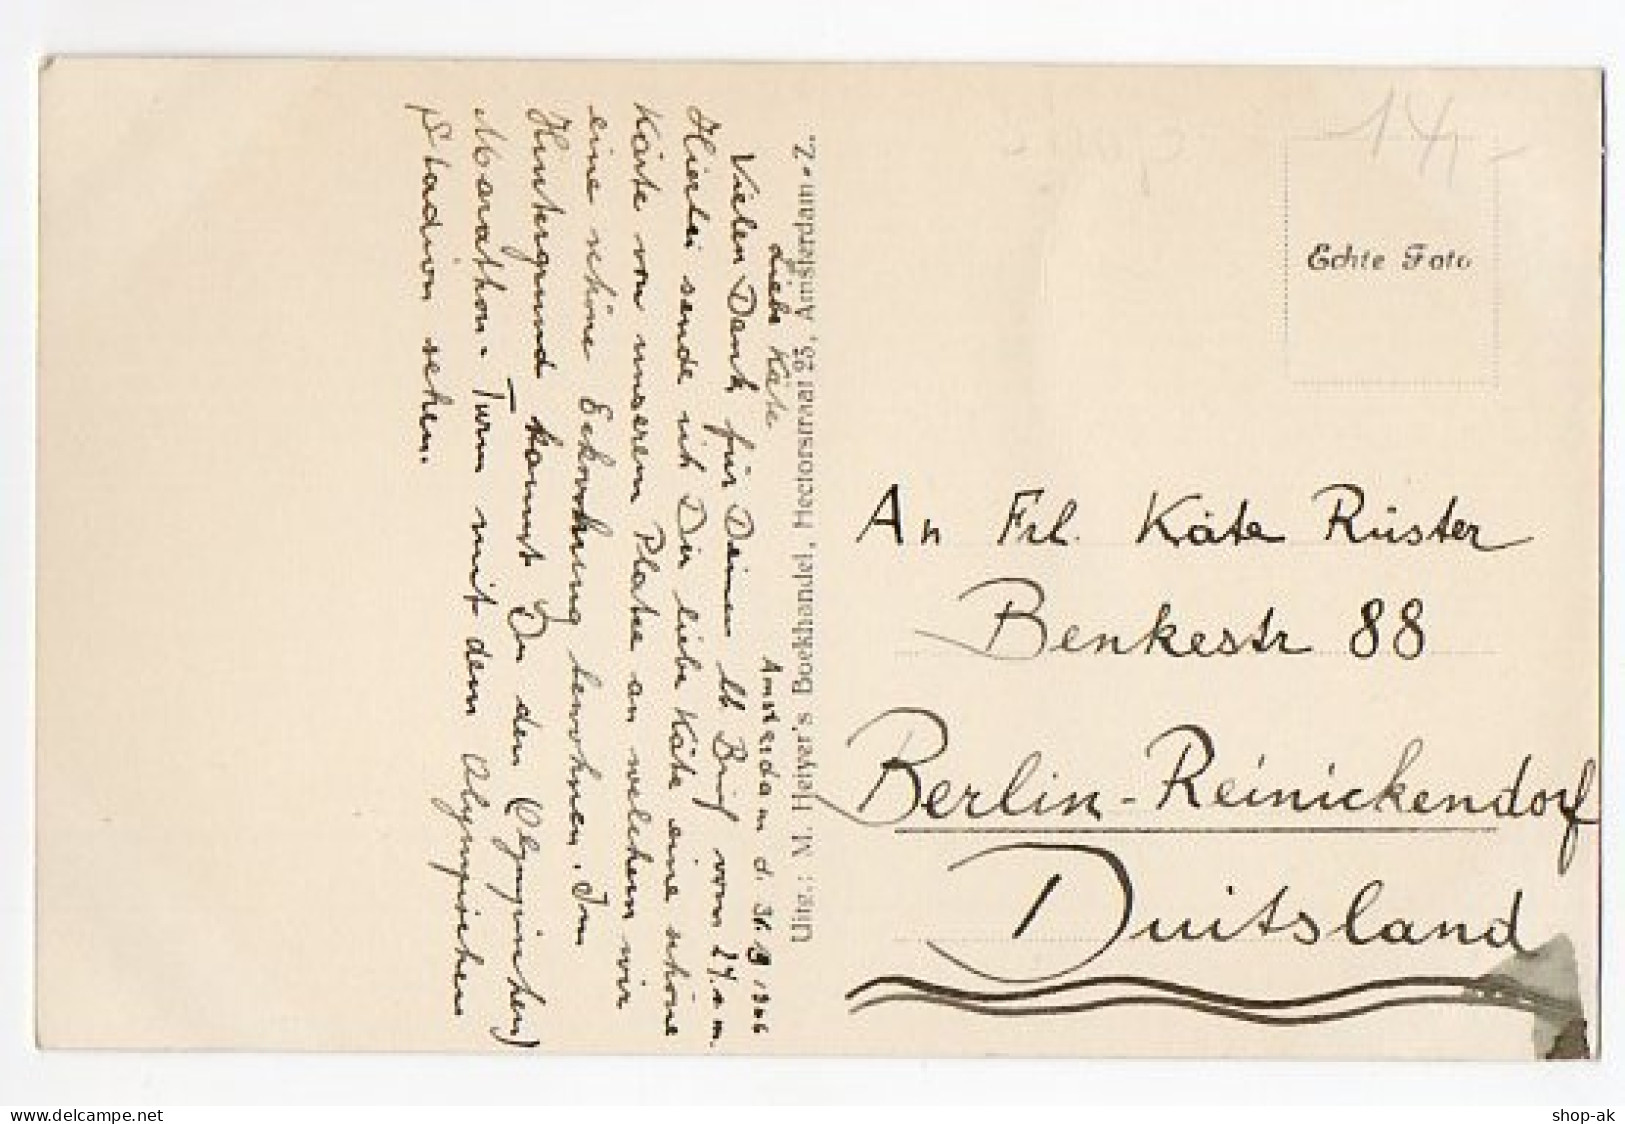 Amsterdam d. 31.
Liebe Käte
Vielen Dank für Deinen lb Brief vom 24. d. m.
Hierbei sende ich Dir liebe Käte eine schöne
Karte von unserem Platze an welchem wir
eine schöne Eckwohnung bewohnen. Im
Hintergrund kannst Du den Olympischen)
Marathon-Turm mit dem Olympischen
Stadion sehen.
Uitg.: M. Heiyer's Boekhandel, Hectorstraat 25, Amsterdam-Z.
14,-
Echte Foto
An Frl. Käte Rüster
Benkestr 88
Berlin-Reinickendorf
Duitsland
shop-ak
delcampe.net